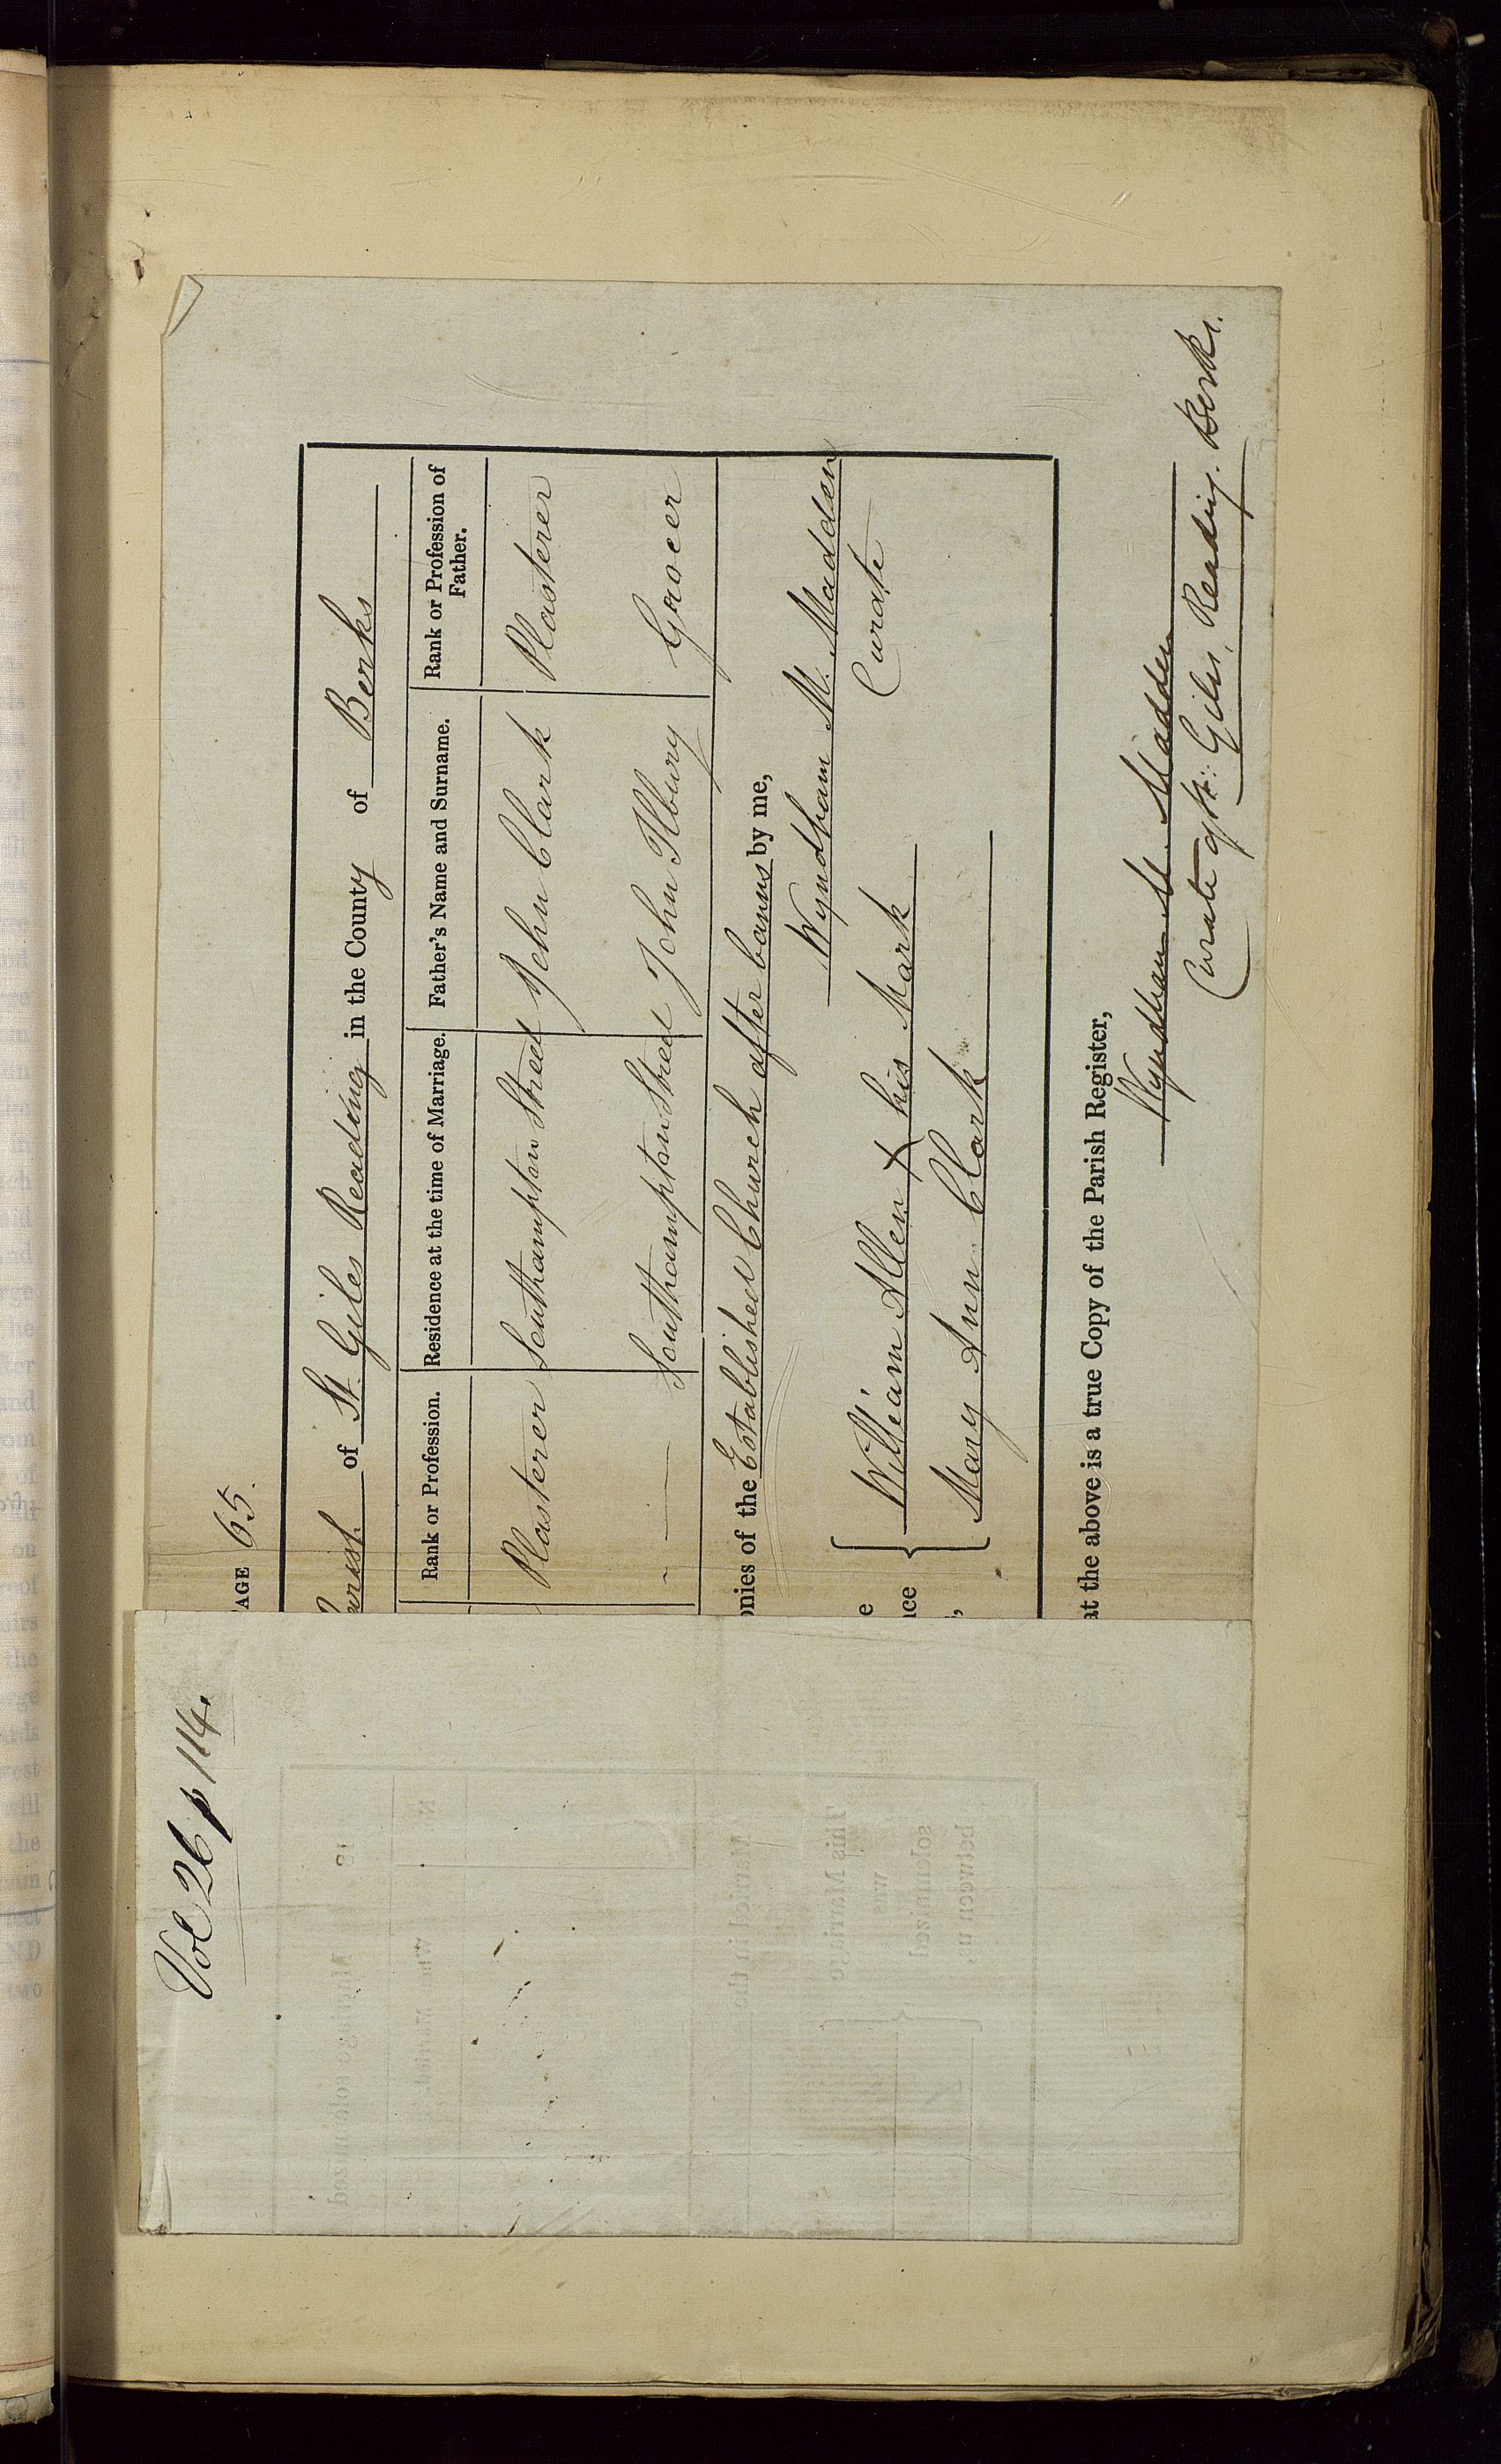 Vol 26 p 114.
AGE 65.
arish of St. Giles Reading in the County of Berks
Rank or Profession. Residence at the time of Marriage. Father's Name and Surname. Rank or Profession of Father.
Plasterer Southampton Street John Clark Plasterer
— Southampton Street John Ilbury Grocer
onies of the Established Church after banns by me,
Wyndham M. Madden
Curate
e
nce
,
William Allen X his Mark
Mary Ann Clark
at the above is a true Copy of the Parish Register,
Wyndham M. Madden
Curate of St. Giles, Reading. Berks.